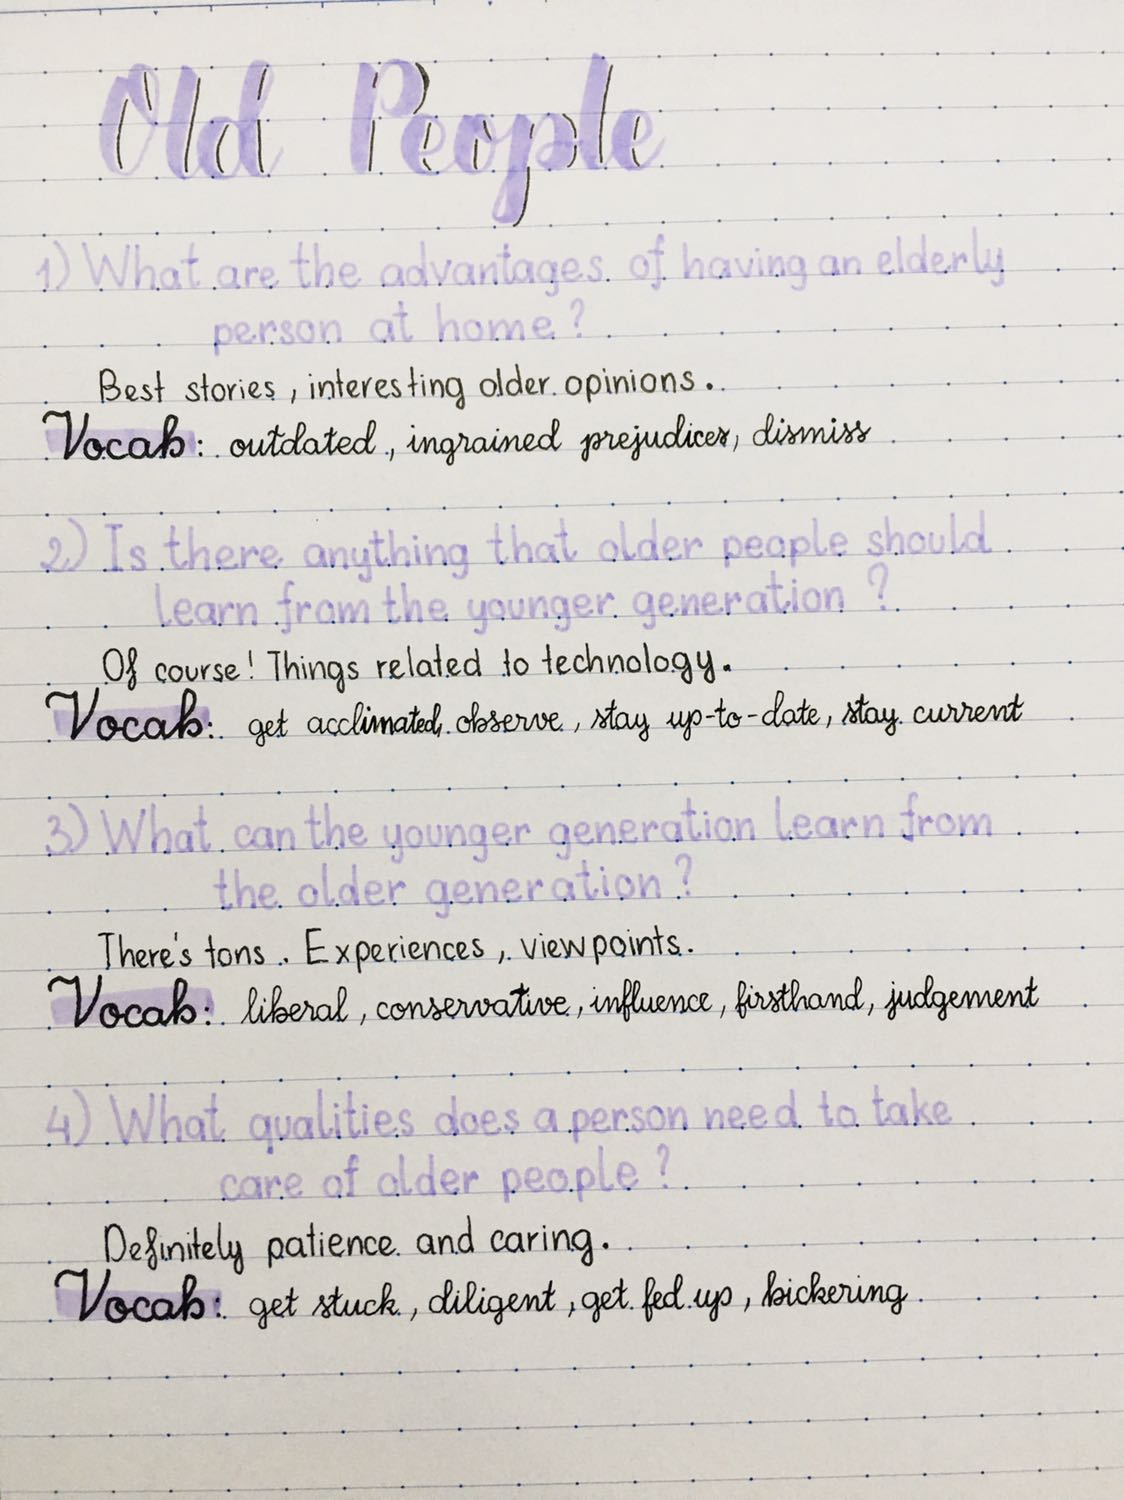 Old People
1) What are the advantages of having an elderly
person at home?
Best stories, interesting older opinions.
Vocab: outdated, ingrained prejudices, dismiss
2) Is there anything that older people should
learn from the younger generation?
Of course! Things related to technology.
Vocab: get acclimated, observe, stay up-to-date, stay current
3) What can the younger generation learn from
the older generation?
There's tons. Experiences, viewpoints.
Vocab: liberal, conservative, influence, firsthand, judgement
4) What qualities does a person need to take
care of older people?
Definitely patience and caring.
Vocab: get stuck, diligent, get fed up, bickering